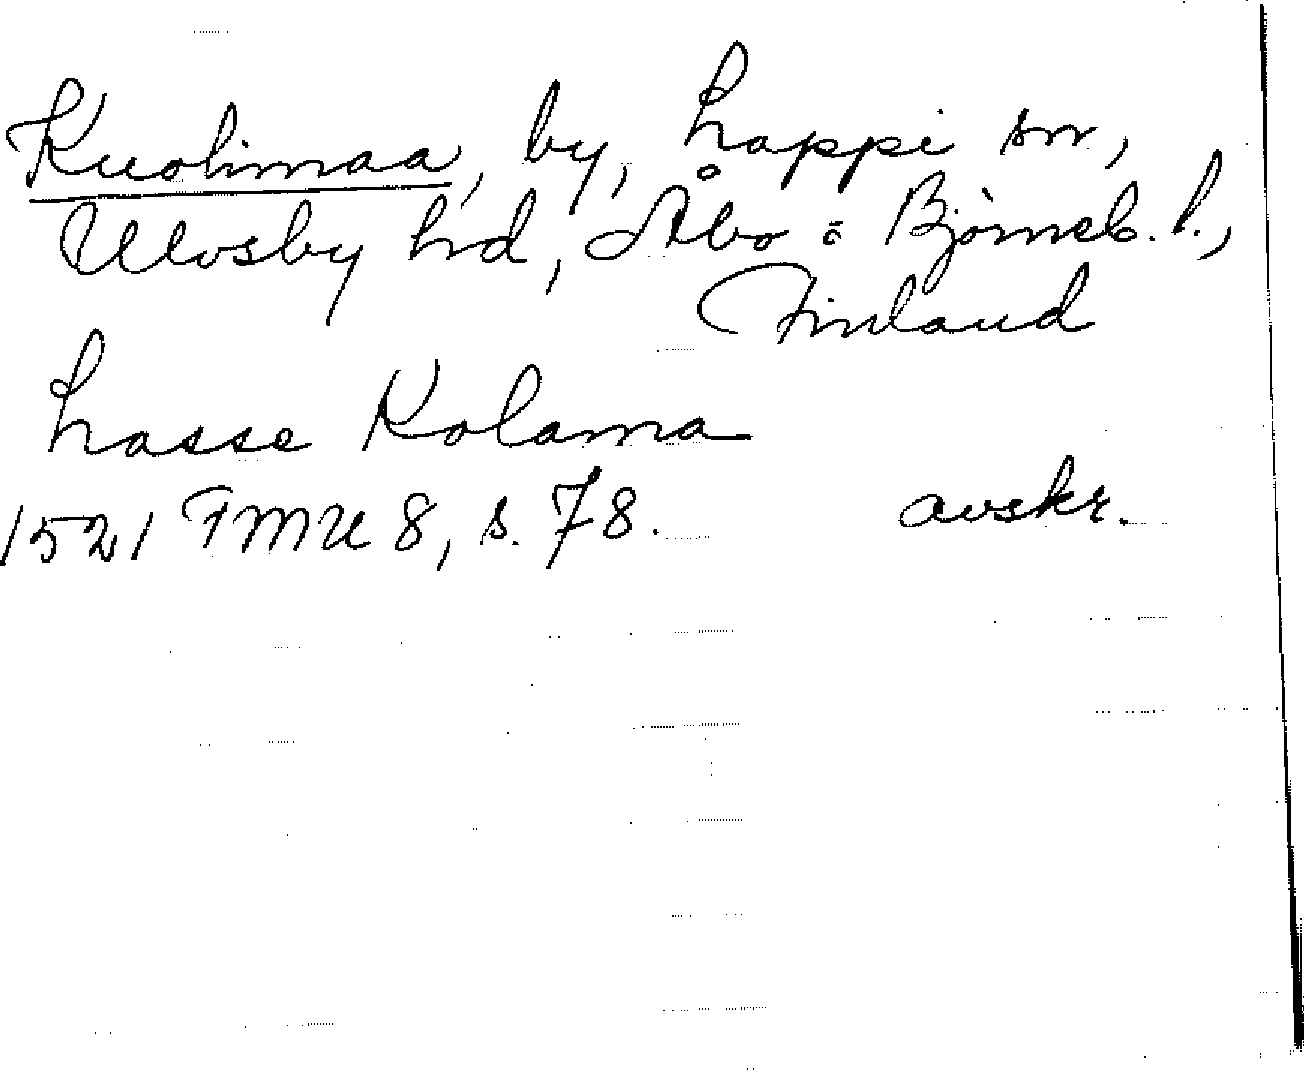 Kuolimaa, by, Lappi sn,
Ulvsby hd, Åbo o Björneb. l.,
Finland
Lasse Kolama
1521 FMU 8, s. 78. avskr.